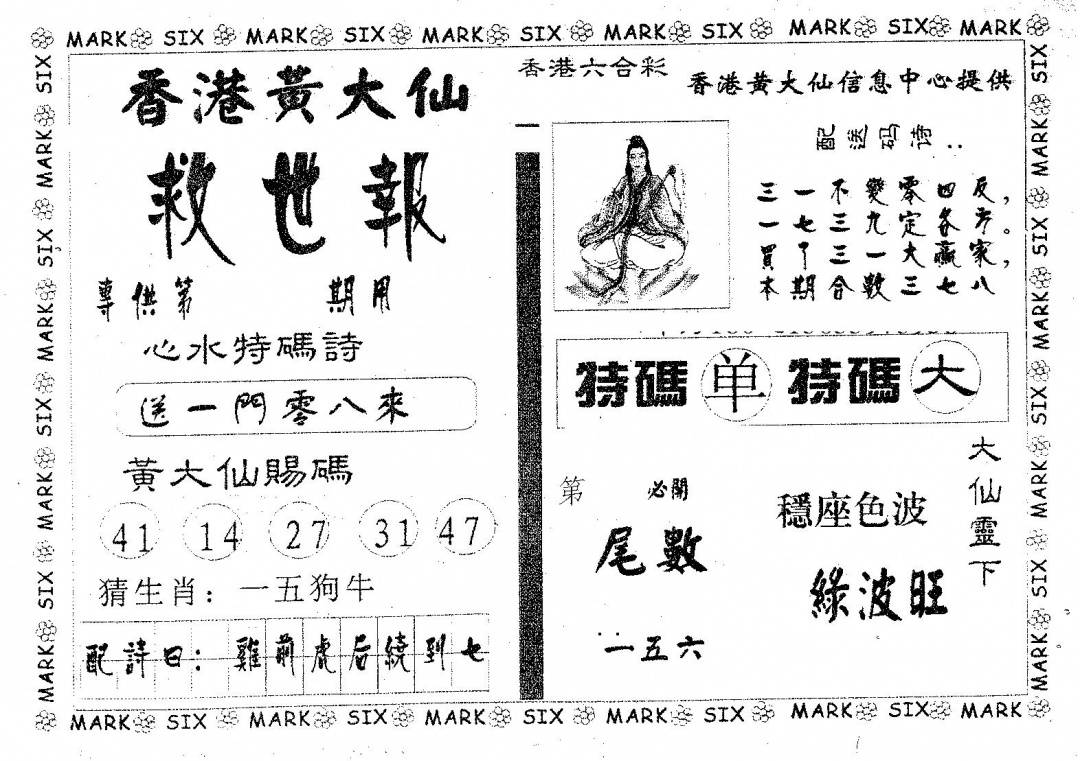 MARK SIX MARK SIX MARK SIX MARK SIX MARK SIX MARK
香港黃大仙
救世報
專供第 期用
心水特碼詩
送一門零八來
黃大仙賜碼
41 14 27 31 47
猜生肖：一五狗牛
配詩曰：雞前虎后繞到七
香港六合彩
香港黃大仙信息中心提供
配送码诗：
三一不變零四反，
一七三九定各方。
買了三一大贏家，
本期合數三七八
特碼 单 特碼 大
第 必開
尾數
一五六
穩座色波
綠波旺
大仙靈下
SIX MARK SIX MARK SIX MARK SIX MARK
SIX MARK SIX MARK SIX MARK SIX MARK
MARK SIX MARK SIX MARK SIX MARK SIX MARK SIX MARK